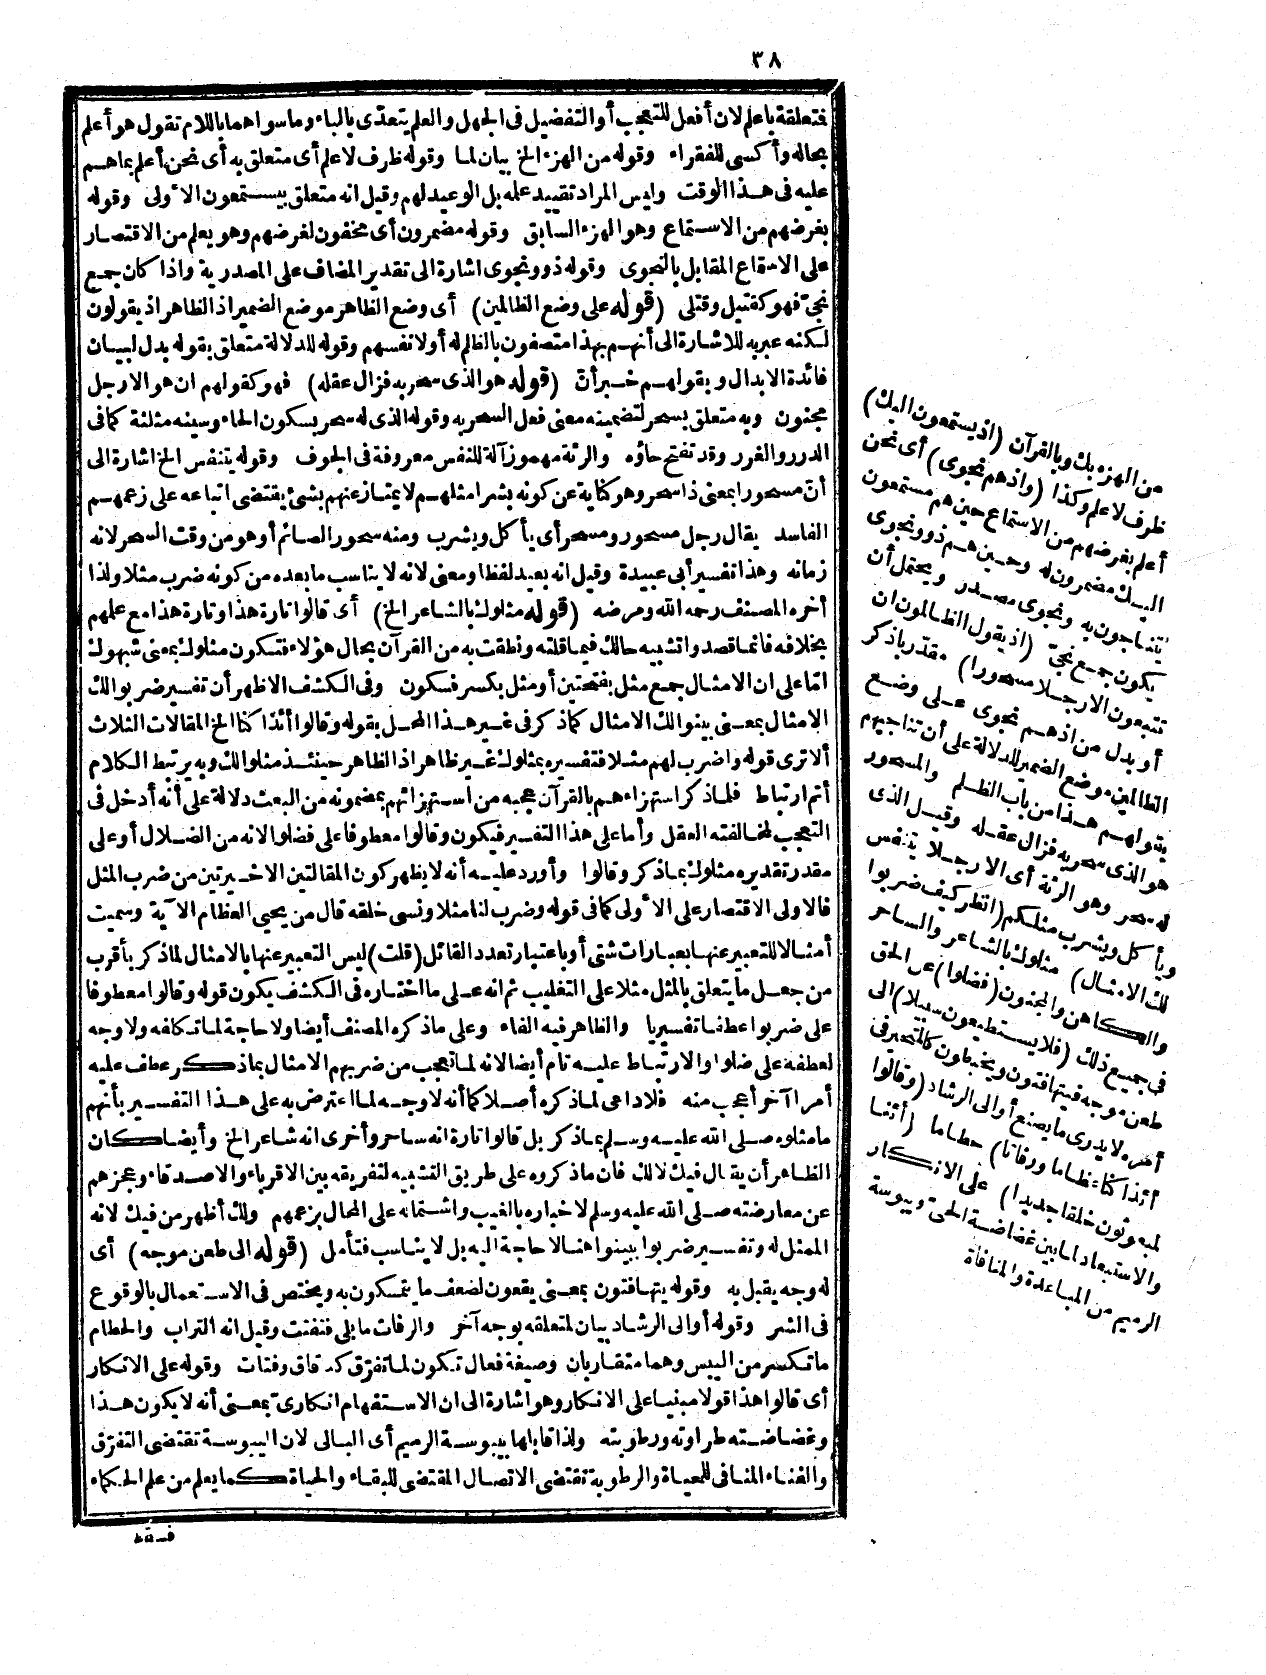 ٣٨
فتعلقة باعلم لان أفعل للتعجب أو التفضيل فى الجهل والعلم يتعدّى بالباء وما سواهما باللام تقول هو أعلم
بحاله وأكسى للفقراء وقوله من الهزء الخ بيان لما وقوله ظرف لاعلم أى متعلق به أى نحن أعلم بما هم
عليه فى هذا الوقت وليس المراد تقييد علمه بل الوعيد لهم وقيل انه متعلق بيستمعون الاولى وقوله
بغرضهم من الاستماع وهو الهزء السابق وقوله مضمرون أى مخفون لغرضهم وهو يعلم من الاقتصار
على الاستماع المقابل بالنجوى وقوله ذوو نجوى اشارة الى تقدير المضاف على المصدرية واذا كان جمع
نجىّ فهو كقتيل وقتلى (قوله على وضع الظالمين) أى وضع الظاهر موضع الضمير اذ الظاهر اذ يقولون
لكنه عبر به للاشارة الى أنهم بهذا متصفون بالظلم له أو لانفسهم وقوله للدلالة متعلق بقوله بدل لبيان
فائدة الابدال وبقولهم خبر أنّ (قوله هو الذى سحر به فزال عقله) فهو كقولهم ان هو الا رجل
مجنون وبه متعلق بسحر لتضمينه معنى فعل السحر به وقوله الذى له سحر بسكون الحاء وسينه مثلثة كما فى
الدرر والغرر وقد تفتح حاؤه والرئة مهموز آلة للنفس معروفة فى الجوف وقوله يتنفس الخ اشارة الى
أنّ مسحورا بمعنى ذا سحر وهو كناية عن كونه بشرا مثلهم لا يمتاز عنهم بشئ يقتضى اتباعه على زعمهم
الفاسد يقال رجل مسحور ومسحر أى يأكل ويشرب ومنه سحور الصائم أو هو من وقت السحر لانه
زمانه وهذا تفسير أبى عبيدة وقيل انه بعيد لفظا ومعنى لانه لا يناسب ما بعده من كونه ضرب مثلا ولذا
أخره المصنف رحمه الله ومرضه (قوله مثلوك بالشاعر الخ) أى قالوا تارة هذا وتارة هذا مع علمهم
بخلافه فانما قصدوا تشبيه حالك فيما قلته ونطقت به من القرآن بحال هؤلاء فتكون مثلوك بمعنى شبهوك
امّا على ان الامثال جمع مثل بفتحتين أو مثل بكسر فسكون وفى الكشف الاظهر أن تفسير ضربوا لك
الامثال بمعنى بينوا لك الامثال كما ذكر فى غير هذا المحل بقوله وقالوا أئذا كنا الخ المقالات الثلاث
ألا ترى قوله واضرب لهم مثلا فتفسيره بمثلوك غير ظاهر اذ الظاهر حينئذ مثلوا لك وبه يرتبط الكلام
أتم ارتباط فلما ذكر استهزاءهم بالقرآن عجبه من استهزائهم بمضمونه من البعث دلالة على أنه أدخل فى
التعجب لمخالفته العقل وأما على هذا التفسير فيكون وقالوا معطوفا على فضلوا لانه من الضلال أو على
مقدر تقديره مثلوك بما ذكر وقالوا وأورد عليه أنه لا يظهر كون المقالتين الاخيرتين من ضرب المثل
فالاولى الاقتصار على الاولى كما فى قوله وضرب لنا مثلا ونسى خلقه قال من يحيى العظام الآية وسميت
أمثالا للتعبير عنها بعبارات شتى أو باعتبار تعدد القائل (قلت) ليس التعبير عنها بالامثال لما ذكر بأقرب
من جعل ما يتعلق بالمثل مثلا على التغليب ثم انه على ما اختاره فى الكشف يكون قوله وقالوا معطوفا
على ضربوا عطفا تفسيريا والظاهر فيه الفاء وعلى ما ذكره المصنف أيضا ولا حاجة لما تكلفه ولا وجه
لعطفه على ضلوا والارتباط عليه تام أيضا لانه لما تعجب من ضربهم الامثال بما ذكر عطف عليه
أمرا آخر أعجب منه فلا داعى لما ذكره أصلا كما أنه لا وجه لما اعترض به على هذا التفسير بأنهم
ما مثلوه صلى الله عليه وسلم بما ذكر بل قالوا تارة انه ساحر وأخرى انه شاعر الخ وأيضا كان
الظاهر أن يقال فيك لا لك فان ما ذكروه على طريق التشبيه لتفريقه بين الاقرباء والاصدقاء وعجزهم
عن معارضته صلى الله عليه وسلم لاخباره بالغيب واشتماله على المحال بزعمهم ولك أظهر من فيك لانه
الممثل له وتفسير ضربوا ببينوا هنا لا حاجة اليه بل لا يناسب فتأمل (قوله الى طعن موجه) أى
له وجه يقبل به وقوله يتهافتون بمعنى يقعون لضعف ما يتمسكون به ويختص فى الاستعمال بالوقوع
فى الشر وقوله أو الى الرشاد بيان لمتعلقه بوجه آخر والرفات ما بلى فتفتت وقيل انه التراب والحطام
ما تكسر من اليبس وهما متقاربان وصيغة فعال تكون لما تفرّق كدقاق وفتات وقوله على الانكار
أى قالوا هذا قولا مبنيا على الانكار وهو اشارة الى ان الاستفهام انكارىّ بمعنى أنه لا يكون هذا
وغضاضته طراوته ورطوبته ولذا قابلها بيبوسة الرميم أى البالى لان اليبوسة تقتضى التفرّق
والفناء المنافى للحياة والرطوبة تقتضى الاتصال المقتضى للبقاء والحياة كما يعلم من علم الحكماء
فقط
من الهزء بك وبالقرآن (اذ يستمعون اليك)
ظرف لاعلم وكذا (واذ هم نجوى) أى نحن
أعلم بغرضهم من الاستماع حين هم مستمعون
اليك مضمرون له وحين هم ذوو نجوى
يتناجون به ونجوى مصدر ويحتمل أن
يكون جمع نجىّ (اذ يقول الظالمون ان
تتبعون الا رجلا مسحورا) مقدّر باذكر
أو بدل من اذ هم نجوى على وضع
الظالمين موضع الضمير للدلالة على أن تناجيهم
بقولهم هذا من باب الظلم والمسحور
هو الذى سحر به فزال عقله وقيل الذى
له سحر وهو الرئة أى الا رجلا يتنفس
ويأكل ويشرب مثلكم (انظر كيف ضربوا
لك الامثال) مثلوك بالشاعر والساحر
والكاهن والمجنون (فضلوا) عن الحق
فى جميع ذلك (فلا يستطيعون سبيلا) الى
طعن موجه فيتهافتون ويخبطون كالمتحير فى
أمره لا يدرى ما يصنع أو الى الرشاد (وقالوا
أئذا كنا عظاما ورفاتا) حطاما (أئنا
لمبعوثون خلقا جديدا) على الانكار
والاستبعاد لما بين غضاضة الحىّ ويبوسة
الرميم من المباعدة والمنافاة